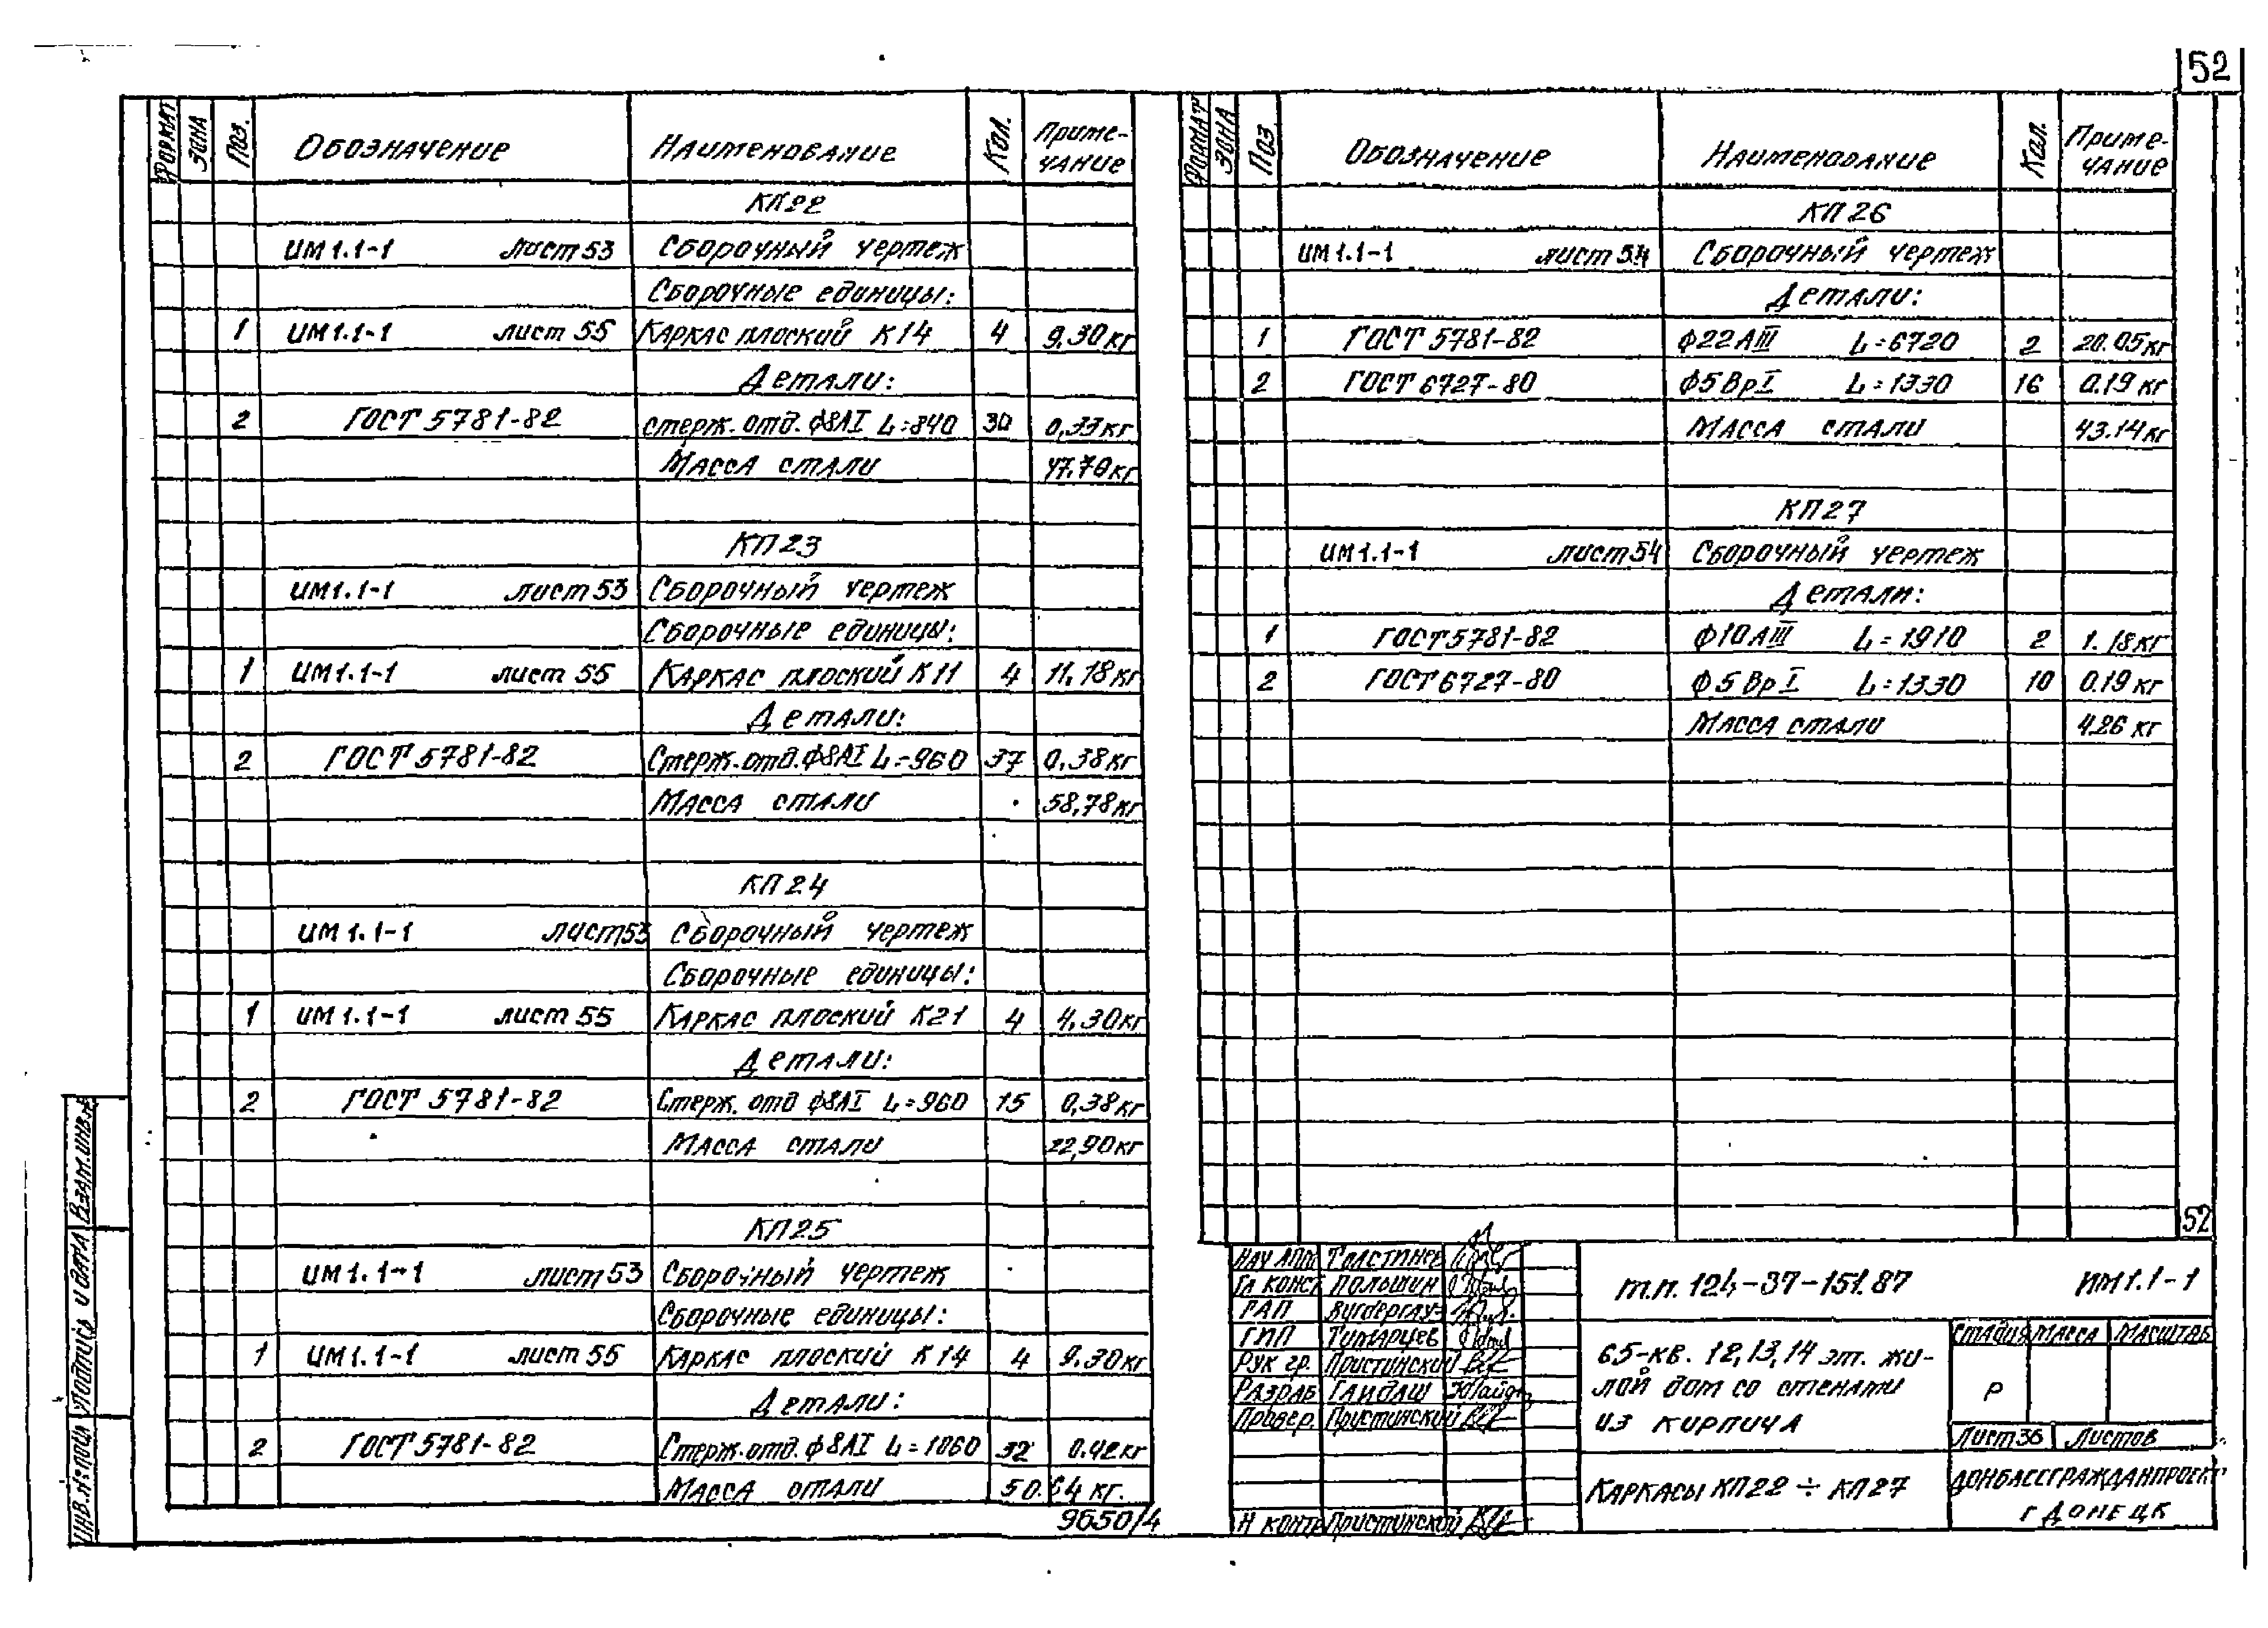 52
Формат Зона Поз. Обозначение Наименование Кол. Приме-чание
КП22
ИМ1.1-1 лист 53 Сборочный чертеж
Сборочные единицы:
1 ИМ1.1-1 лист 55 Каркас плоский К14 4 9,30кг
Детали:
2 ГОСТ 5781-82 стерж. отд. ф8АI L=840 30 0,33кг
Масса стали 47.70кг
КП23
ИМ1.1-1 лист 53 Сборочный чертеж
Сборочные единицы:
1 ИМ1.1-1 лист 55 Каркас плоский К11 4 11.18кг
Детали:
2 ГОСТ 5781-82 Стерж. отд. ф8АI L=960 37 0,38кг
Масса стали 58,78кг
КП24
ИМ1.1-1 лист 53 Сборочный чертеж
Сборочные единицы:
1 ИМ1.1-1 лист 55 Каркас плоский К21 4 4,30кг
Детали:
2 ГОСТ 5781-82 Стерж. отд ф8АI L=960 15 0,38кг
Масса стали 22,90кг
КП25
ИМ1.1-1 лист 53 Сборочный чертеж
Сборочные единицы:
1 ИМ1.1-1 лист 55 Каркас плоский К14 4 9.30кг
Детали:
2 ГОСТ 5781-82 Стерж. отд. ф8АI L=1060 32 0.42кг
Масса стали 50.64 кг.
9650/4
Формат Зона Поз Обозначение Наименование Кол. Приме-чание
КП26
ИМ1.1-1 лист 54 Сборочный чертеж
Детали:
1 ГОСТ 5781-82 ф22АIII L=6720 2 20.05кг
2 ГОСТ 6727-80 ф5ВрI L=1330 16 0.19 кг
Масса стали 43.14кг
КП27
ИМ1.1-1 лист 54 Сборочный чертеж
Детали:
1 ГОСТ 5781-82 ф10АIII L=1910 2 1.18кг
2 ГОСТ 6727-80 ф5ВрI L=1330 10 0.19 кг
Масса стали 4.26 кг
52
Инв. № подл Подпись и дата Взам.инв.№
Гл конст Польшин
ГАП
ГИП Тимарцев
Рук гр. Пристинский
Разраб Гайдаш
Провер. Пристинский
Н контр Пристинский
т.п. 124-37-151.87 ИМ1.1-1
65-кв. 12,13,14 эт. жи-
лой дом со стенами
из кирпича
Стадия Масса Масштаб
Р
Лист 36 Листов
Каркасы КП22 ÷ КП27
Донбассгражданпроект
г Донецк